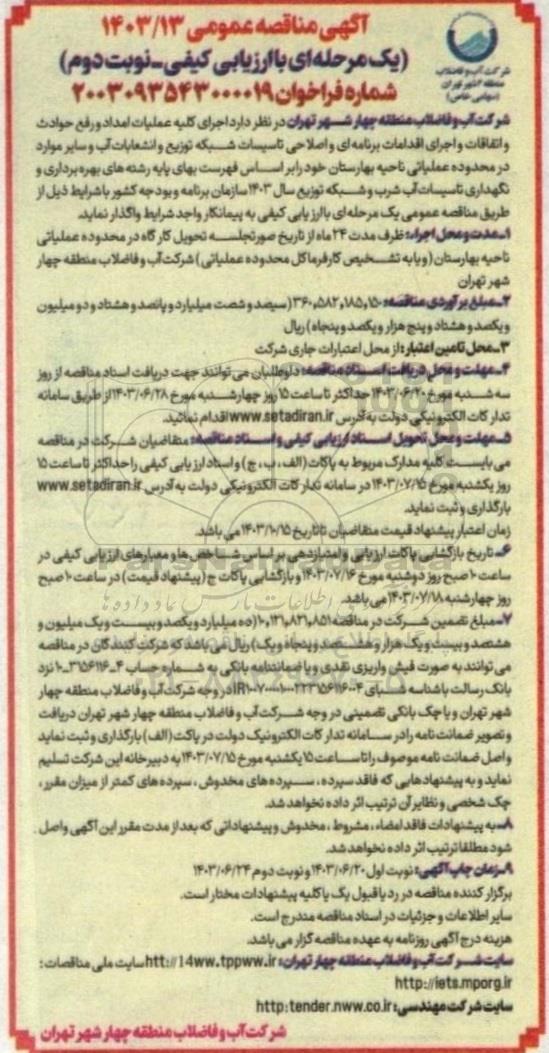 آگهی مناقصه عمومی ۱۴۰۳/۱۳
(یک مرحله‌ای با ارزیابی کیفی - نوبت دوم)
شماره فراخوان ۲۰۰۳۰۹۳۵۴۳۰۰۰۰۱۹
شرکت آب و فاضلاب
منطقه ۴ شهر تهران
(سهامی خاص)
شرکت آب و فاضلاب منطقه چهار شهر تهران در نظر دارد اجرای کلیه عملیات امداد و رفع حوادث
و اتفاقات و اجرای اقدامات برنامه ای و اصلاحی تاسیسات شبکه توزیع و انشعابات آب و سایر موارد
در محدوده عملیاتی ناحیه بهارستان خود را بر اساس فهرست بهای پایه رشته های بهره برداری و
نگهداری تاسیسات آب شرب و شبکه توزیع سال ۱۴۰۳ سازمان برنامه و بودجه کشور با شرایط ذیل از
طریق مناقصه عمومی یک مرحله‌ای با ارزیابی کیفی به پیمانکار واجد شرایط واگذار نماید.
۱- مدت و محل اجراء: ظرف مدت ۲۴ ماه از تاریخ صورتجلسه تحویل کارگاه در محدوده عملیاتی
ناحیه بهارستان (و یا به تشخیص کارفرما کل محدوده عملیاتی) شرکت آب و فاضلاب منطقه چهار
شهر تهران
۲- مبلغ برآوردی مناقصه: ۳۶۰,۵۸۲,۱۸۵,۱۵۰ (سیصد و شصت میلیارد و پانصد و هشتاد و دو میلیون
و یکصد و هشتاد و پنج هزار و یکصد و پنجاه) ریال
۳- محل تامین اعتبار: از محل اعتبارات جاری شرکت
۴- مهلت و محل دریافت اسناد مناقصه: داوطلبان می توانند جهت دریافت اسناد مناقصه از روز
سه شنبه مورخ ۱۴۰۳/۰۶/۲۰ حداکثر تا ساعت ۱۵ روز چهارشنبه مورخ ۱۴۰۳/۰۶/۲۸ از طریق سامانه
تدارکات الکترونیکی دولت به آدرس www.setadiran.ir اقدام نمائید.
۵- مهلت و محل تحویل اسناد ارزیابی کیفی و اسناد مناقصه: متقاضیان شرکت در مناقصه
می بایست کلیه مدارک مربوط به پاکات (الف، ب، ج) و اسناد ارزیابی کیفی را حداکثر تا ساعت ۱۵
روز یکشنبه مورخ ۱۴۰۳/۰۷/۱۵ در سامانه تدارکات الکترونیکی دولت به آدرس www.setadiran.ir
بارگذاری و ثبت نماید.
زمان اعتبار پیشنهاد قیمت متقاضیان تا تاریخ ۱۴۰۳/۱۰/۱۵ می باشد.
۶- تاریخ بازگشایی پاکات ارزیابی و امتیازدهی بر اساس شاخص ها و معیارهای ارزیابی کیفی در
ساعت ۱۰ صبح روز دوشنبه مورخ ۱۴۰۳/۰۷/۱۶ و بازگشایی پاکات ج (پیشنهاد قیمت) در ساعت ۱۰ صبح
روز چهارشنبه ۱۴۰۳/۰۷/۱۸ می باشد.
۷- مبلغ تضمین شرکت در مناقصه ۱۰,۱۲۱,۸۲۱,۸۵۱ (ده میلیارد و یکصد و بیست و یک میلیون و
هشتصد و بیست و یک هزار و هشتصد و پنجاه و یک) ریال می باشد که شرکت کنندگان در مناقصه
می توانند به صورت فیش واریزی نقدی و یا ضمانتنامه بانکی به شماره حساب ۴-۳۱۵۶۱۱۶-۱۰ نزد
بانک رسالت با شناسه شبای در وجه شرکت آب و فاضلاب منطقه چهار
شهر تهران و یا چک بانکی تضمینی در وجه شرکت آب و فاضلاب منطقه چهار شهر تهران دریافت
و تصویر ضمانت نامه را در سامانه تدارکات الکترونیک دولت در پاکت (الف) بارگذاری و ثبت نماید
و اصل ضمانت نامه موصوف را تا ساعت ۱۵ یکشنبه مورخ ۱۴۰۳/۰۷/۱۵ به دبیرخانه این شرکت تسلیم
نماید و به پیشنهادهایی که فاقد سپرده، سپرده های مخدوش، سپرده های کمتر از میزان مقرر،
چک شخصی و نظایر آن ترتیب اثر داده نخواهد شد.
۸- به پیشنهادات فاقد امضاء، مشروط، مخدوش و پیشنهاداتی که بعد از مدت مقرر این آگهی واصل
شود مطلقا ترتیب اثر داده نخواهد شد.
۹- زمان چاپ آگهی: نوبت اول ۱۴۰۳/۰۶/۲۰ و نوبت دوم ۱۴۰۳/۰۶/۲۴
برگزار کننده مناقصه در رد یا قبول یک یا کلیه پیشنهادات مختار است.
سایر اطلاعات و جزئیات در اسناد مناقصه مندرج است.
هزینه درج آگهی روزنامه به عهده مناقصه گزار می باشد.
سایت شرکت آب و فاضلاب منطقه چهار تهران: htt://14ww.tppww.ir سایت ملی مناقصات:
http://iets.mporg.ir
سایت شرکت مهندسی: http:tender.nww.co.ir
شرکت آب و فاضلاب منطقه چهار شهر تهران